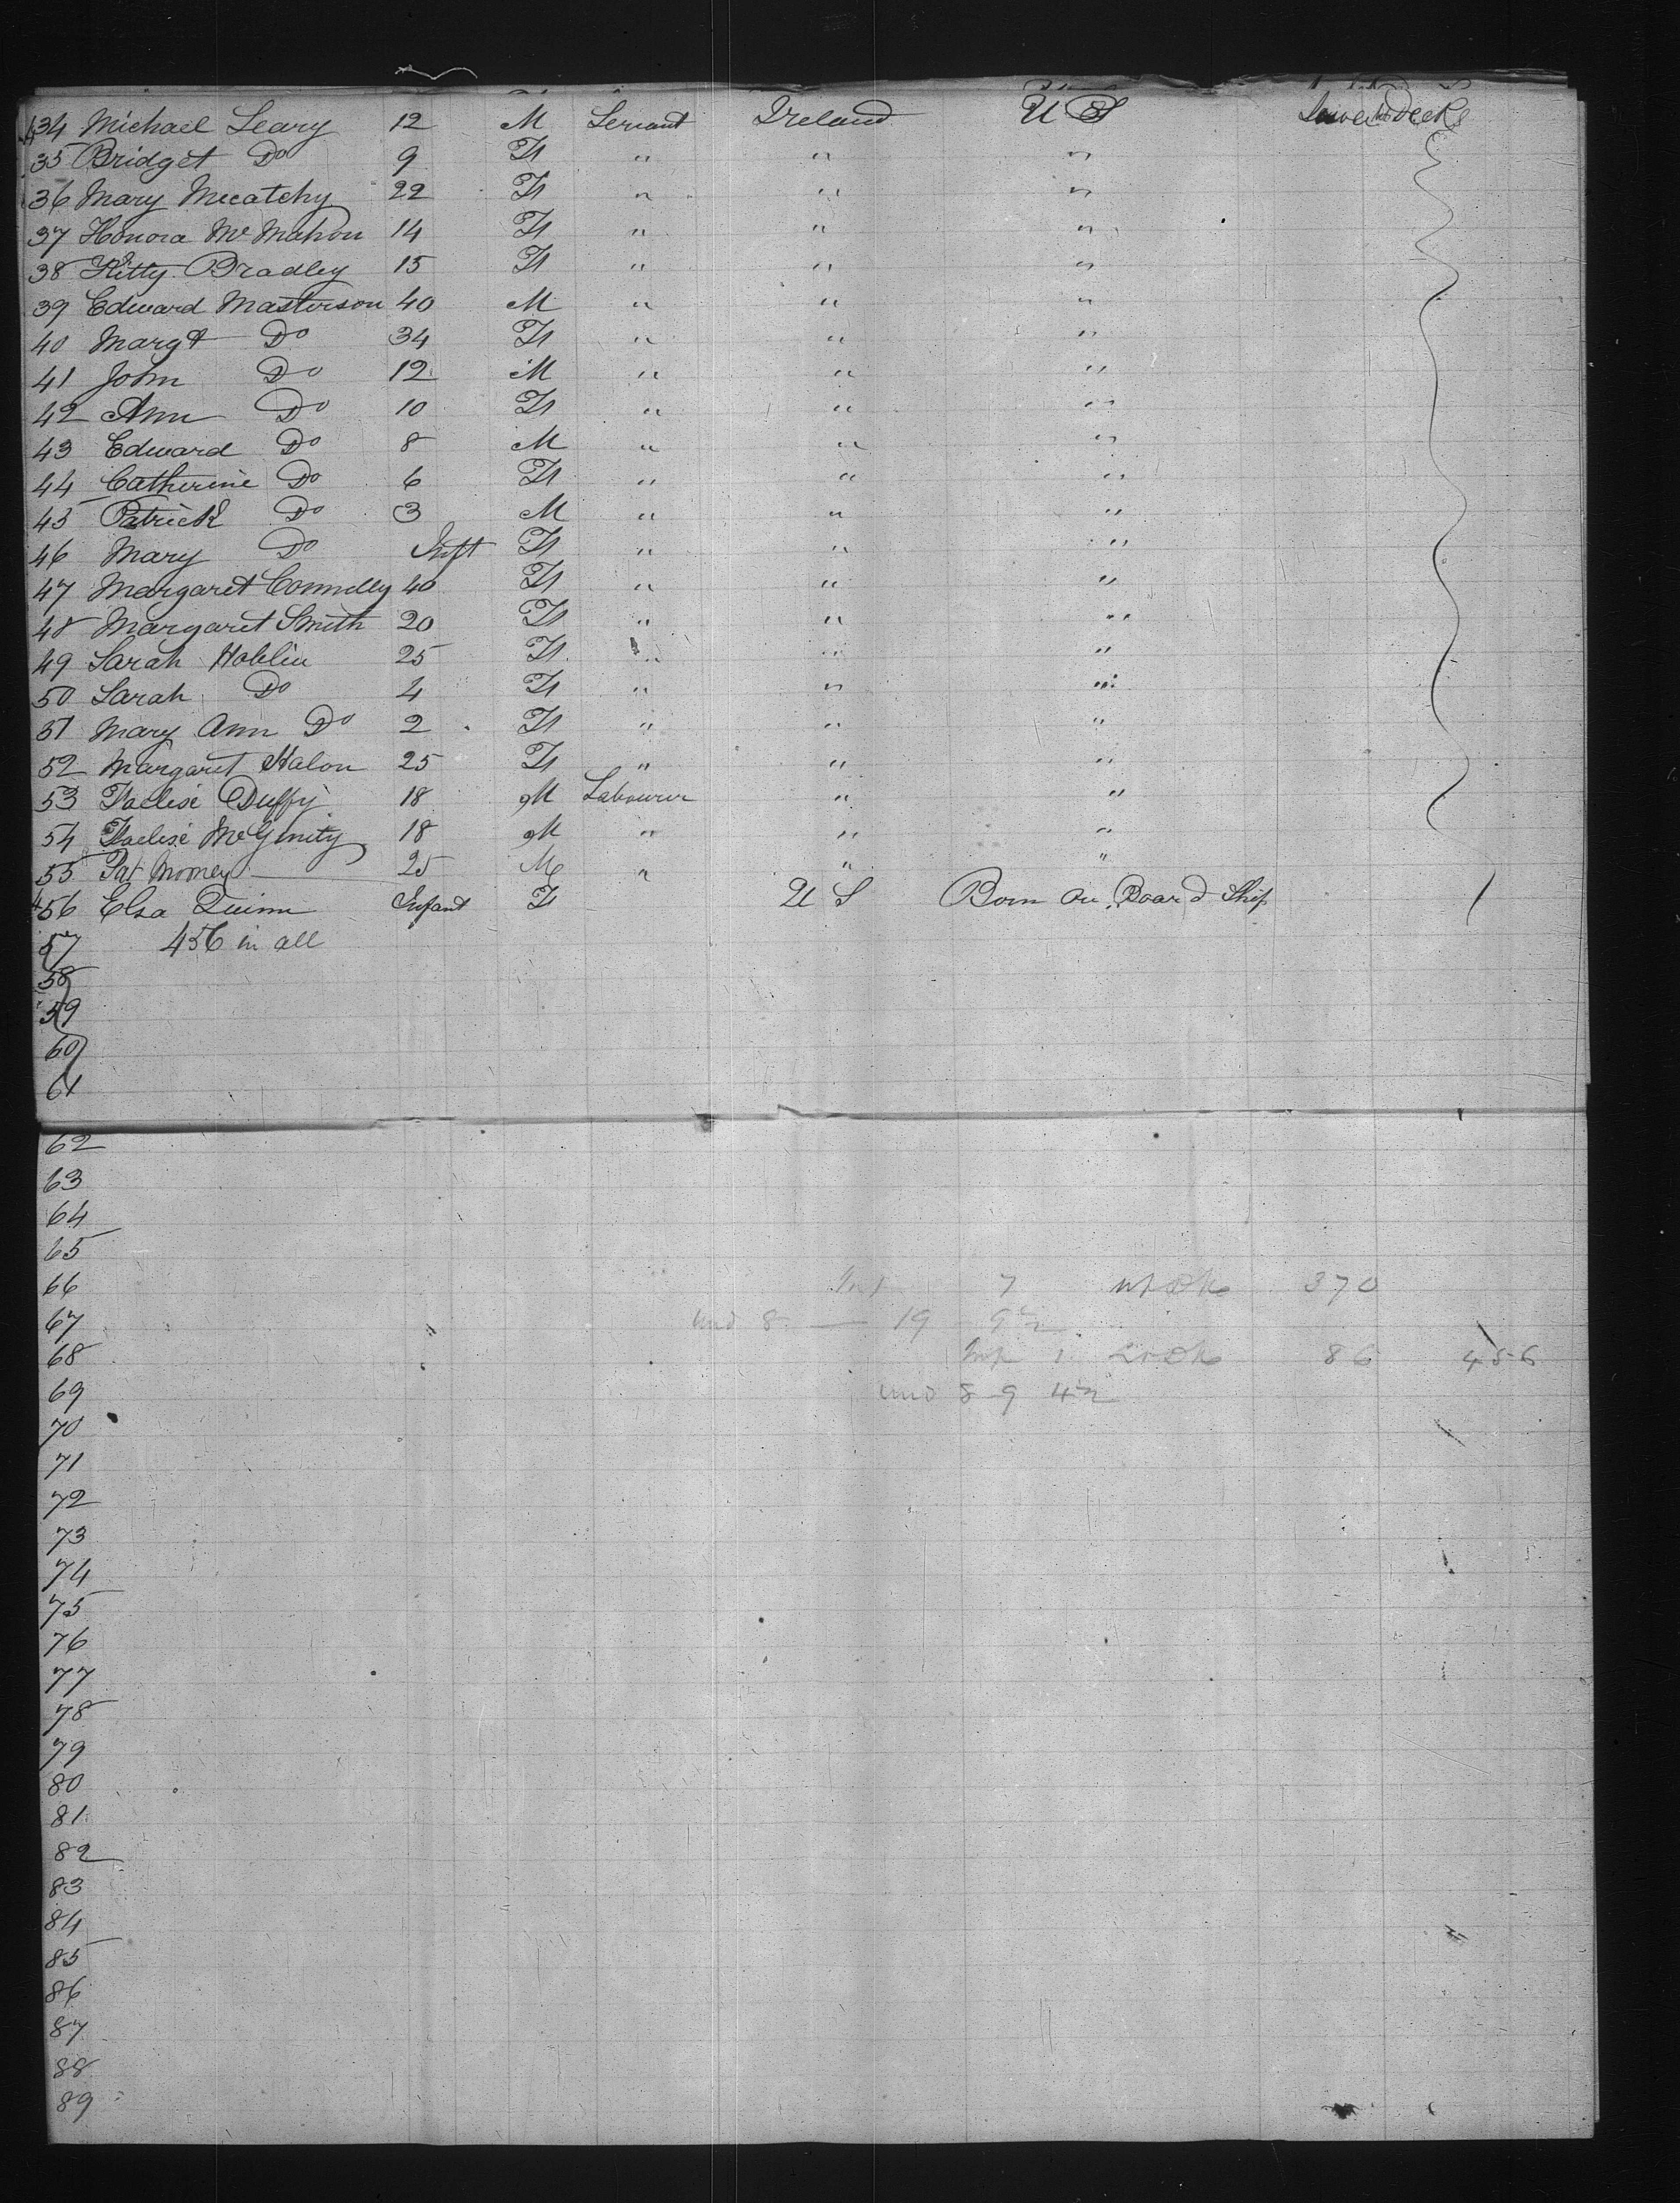 434 Michael Leary 12 M Servant Ireland U S Lower Deck
35 Bridget Do 9 F " " "
36 Mary Mccatchy 22 F " " "
37 Honora Mc Mahon 14 F " " "
38 Kitty Bradley 15 F " " "
39 Edward Masterson 40 M " " "
40 Margt Do 34 F " " "
41 John Do 12 M " " "
42 Ann Do 10 F " " "
43 Edward Do 8 M " " "
44 Catherine Do 6 F " " "
45 Patrick Do 3 M " " "
46 Mary Do Inft F " " "
47 Margaret Connelly 40 F " " "
48 Margaret Smith 20 F " " "
49 Sarah 25 F " " "
50 Sarah Do 4 F " " "
51 Mary Ann Do 2 F " " "
52 Margaret Halon 25 F " " "
53 Duffy 18 M Labourer " "
54 McGinity 18 M " " "
55 Pat Mooney 25 M " " "
456 Elsa Quinn Infant F U S Born on Board Ship
57 456 in all
58
59
60
61
62
63
64
65
66 Inf 7 370
67 und 8 — 19 9½
68 Inf 1 86 456
69 und 8 9 4½
70
71
72
73
74
75
76
77
78
79
80
81
82
83
84
85
86
87
88
89